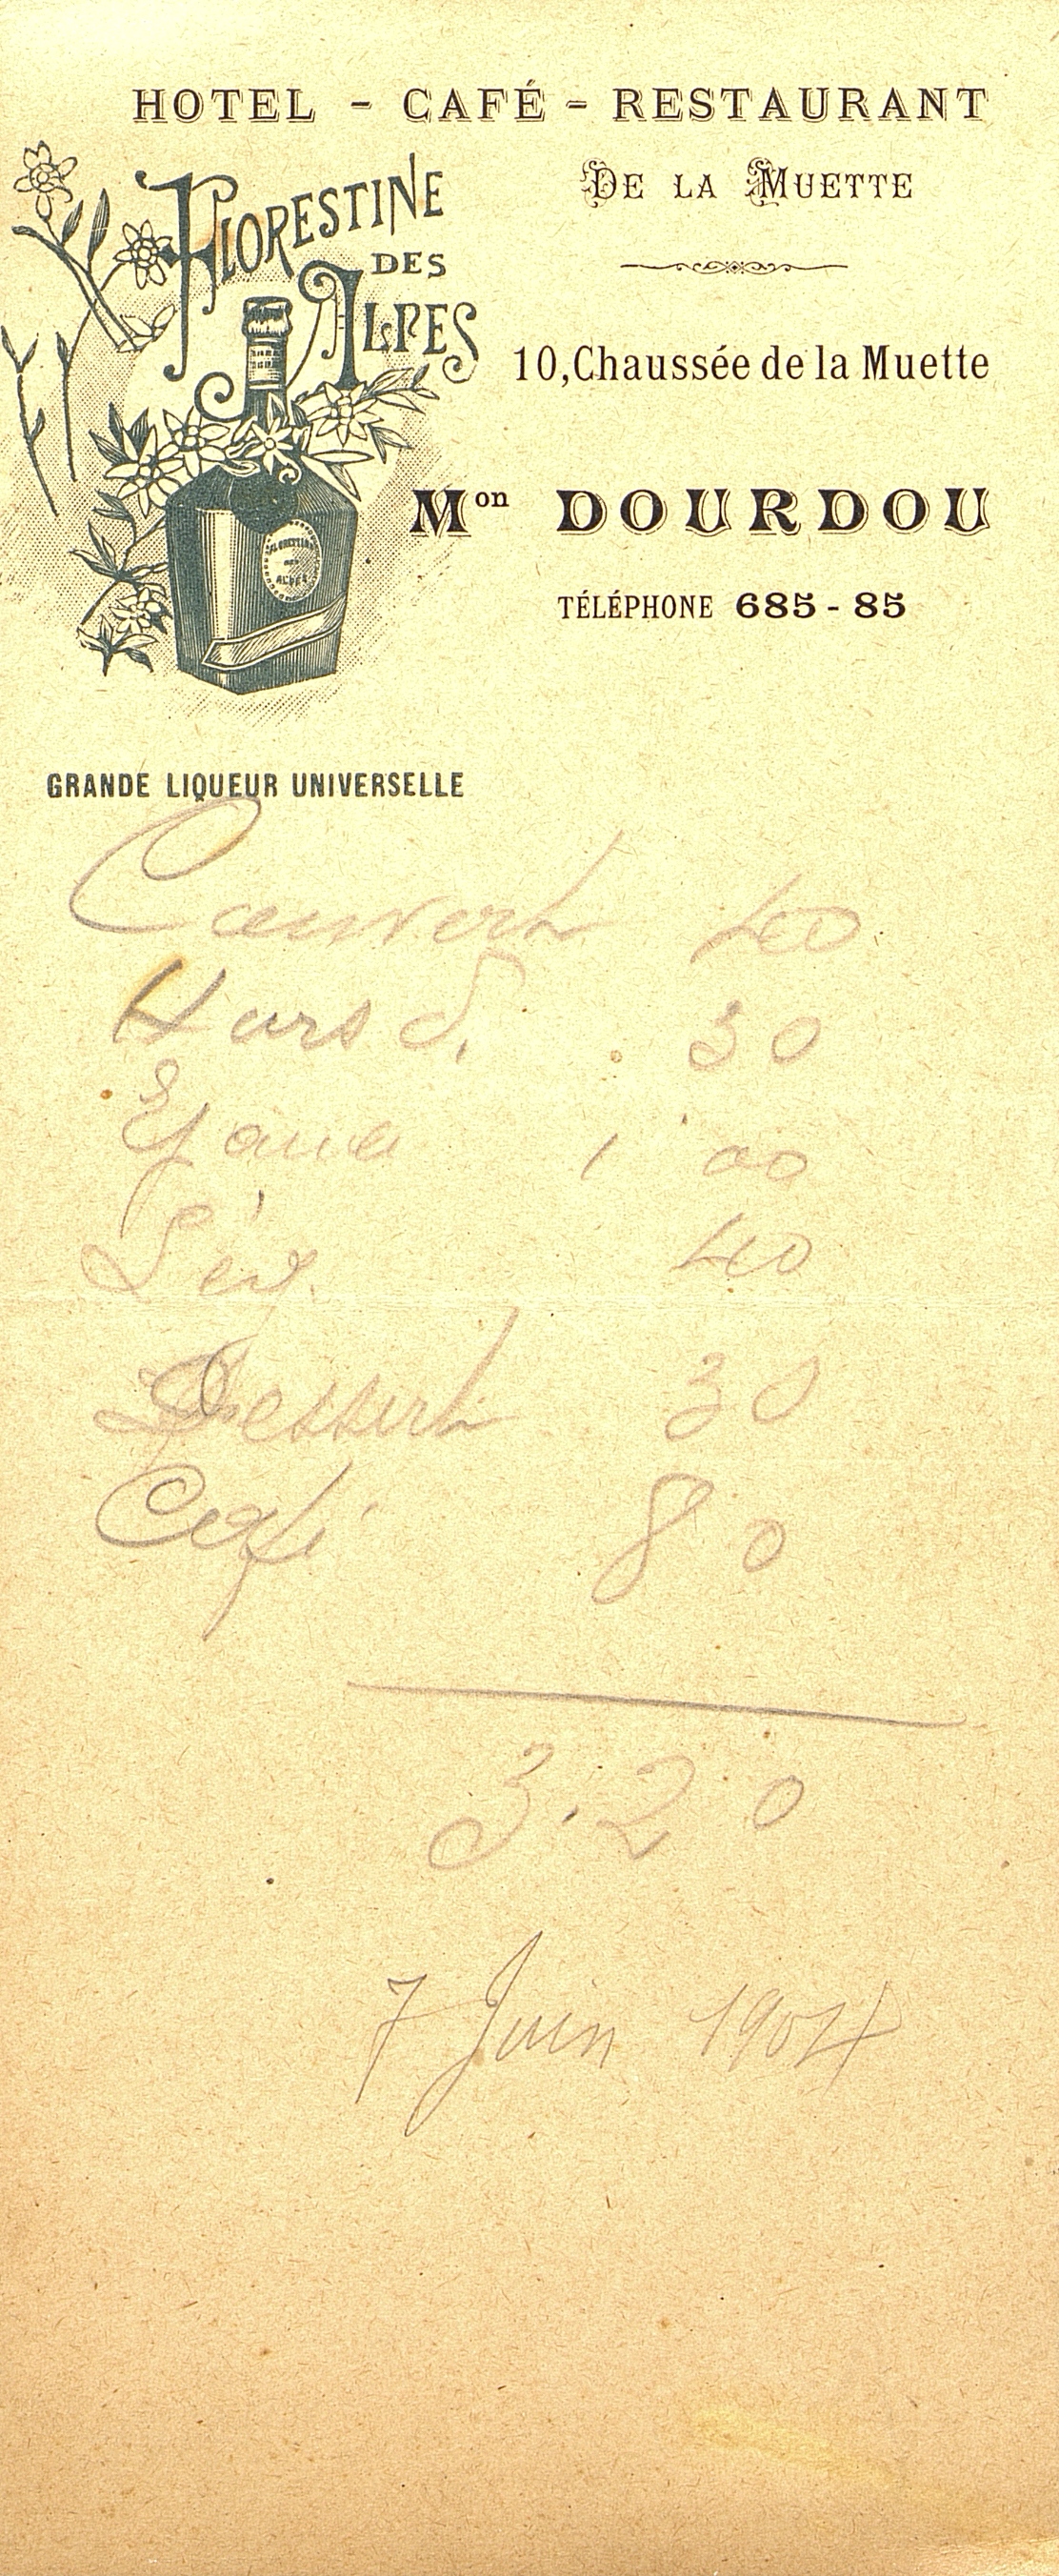 HOTEL - CAFÉ - RESTAURANT
DE LA MUETTE
FLORESTINE
DES
ALPES
10, Chaussée de la Muette
Mon DOURDOU
TÉLÉPHONE 685 - 85
FLORESTINE
DES
ALPES
GRANDE LIQUEUR UNIVERSELLE
Couvert 40
Hors d. 30
1 00
Lég. 40
Dessert 30
Café 80
3.20
7 Juin 1904